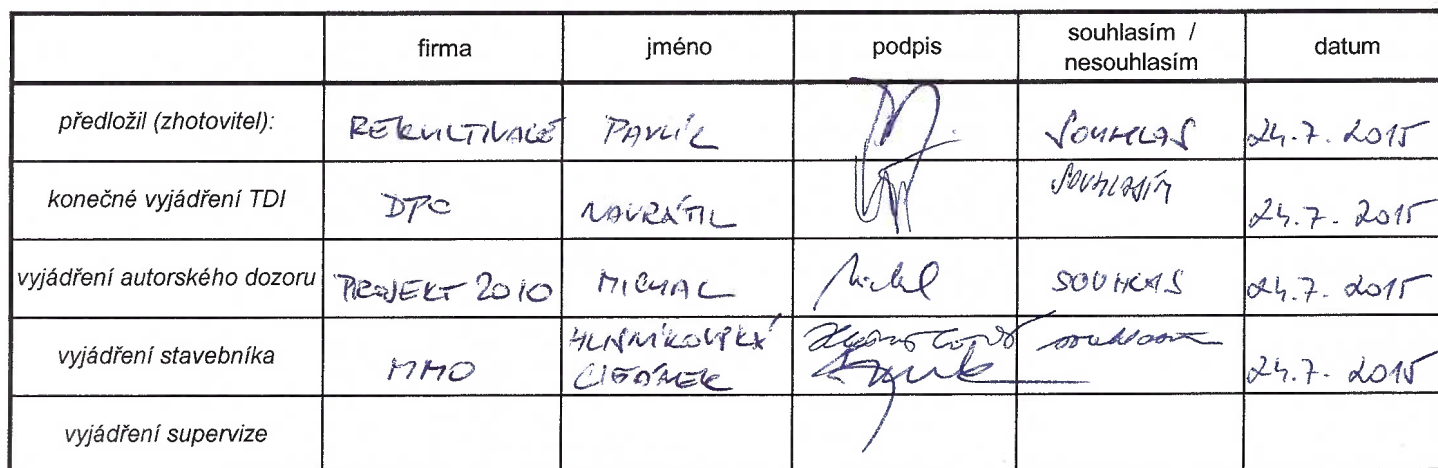 firma jméno podpis souhlasím / nesouhlasím datum
předložil (zhotovitel): REKULTIVACE PAVLÍK SOUHLAS 24.7. 2015
konečné vyjádření TDI DPO NAVRÁTIL SOUHLASÍM 24.7. 2015
vyjádření autorského dozoru PROJEKT 2010 MICHAL SOUHLAS 24.7. 2015
vyjádření stavebníka MMO souhlasím 24.7. 2015
vyjádření supervize